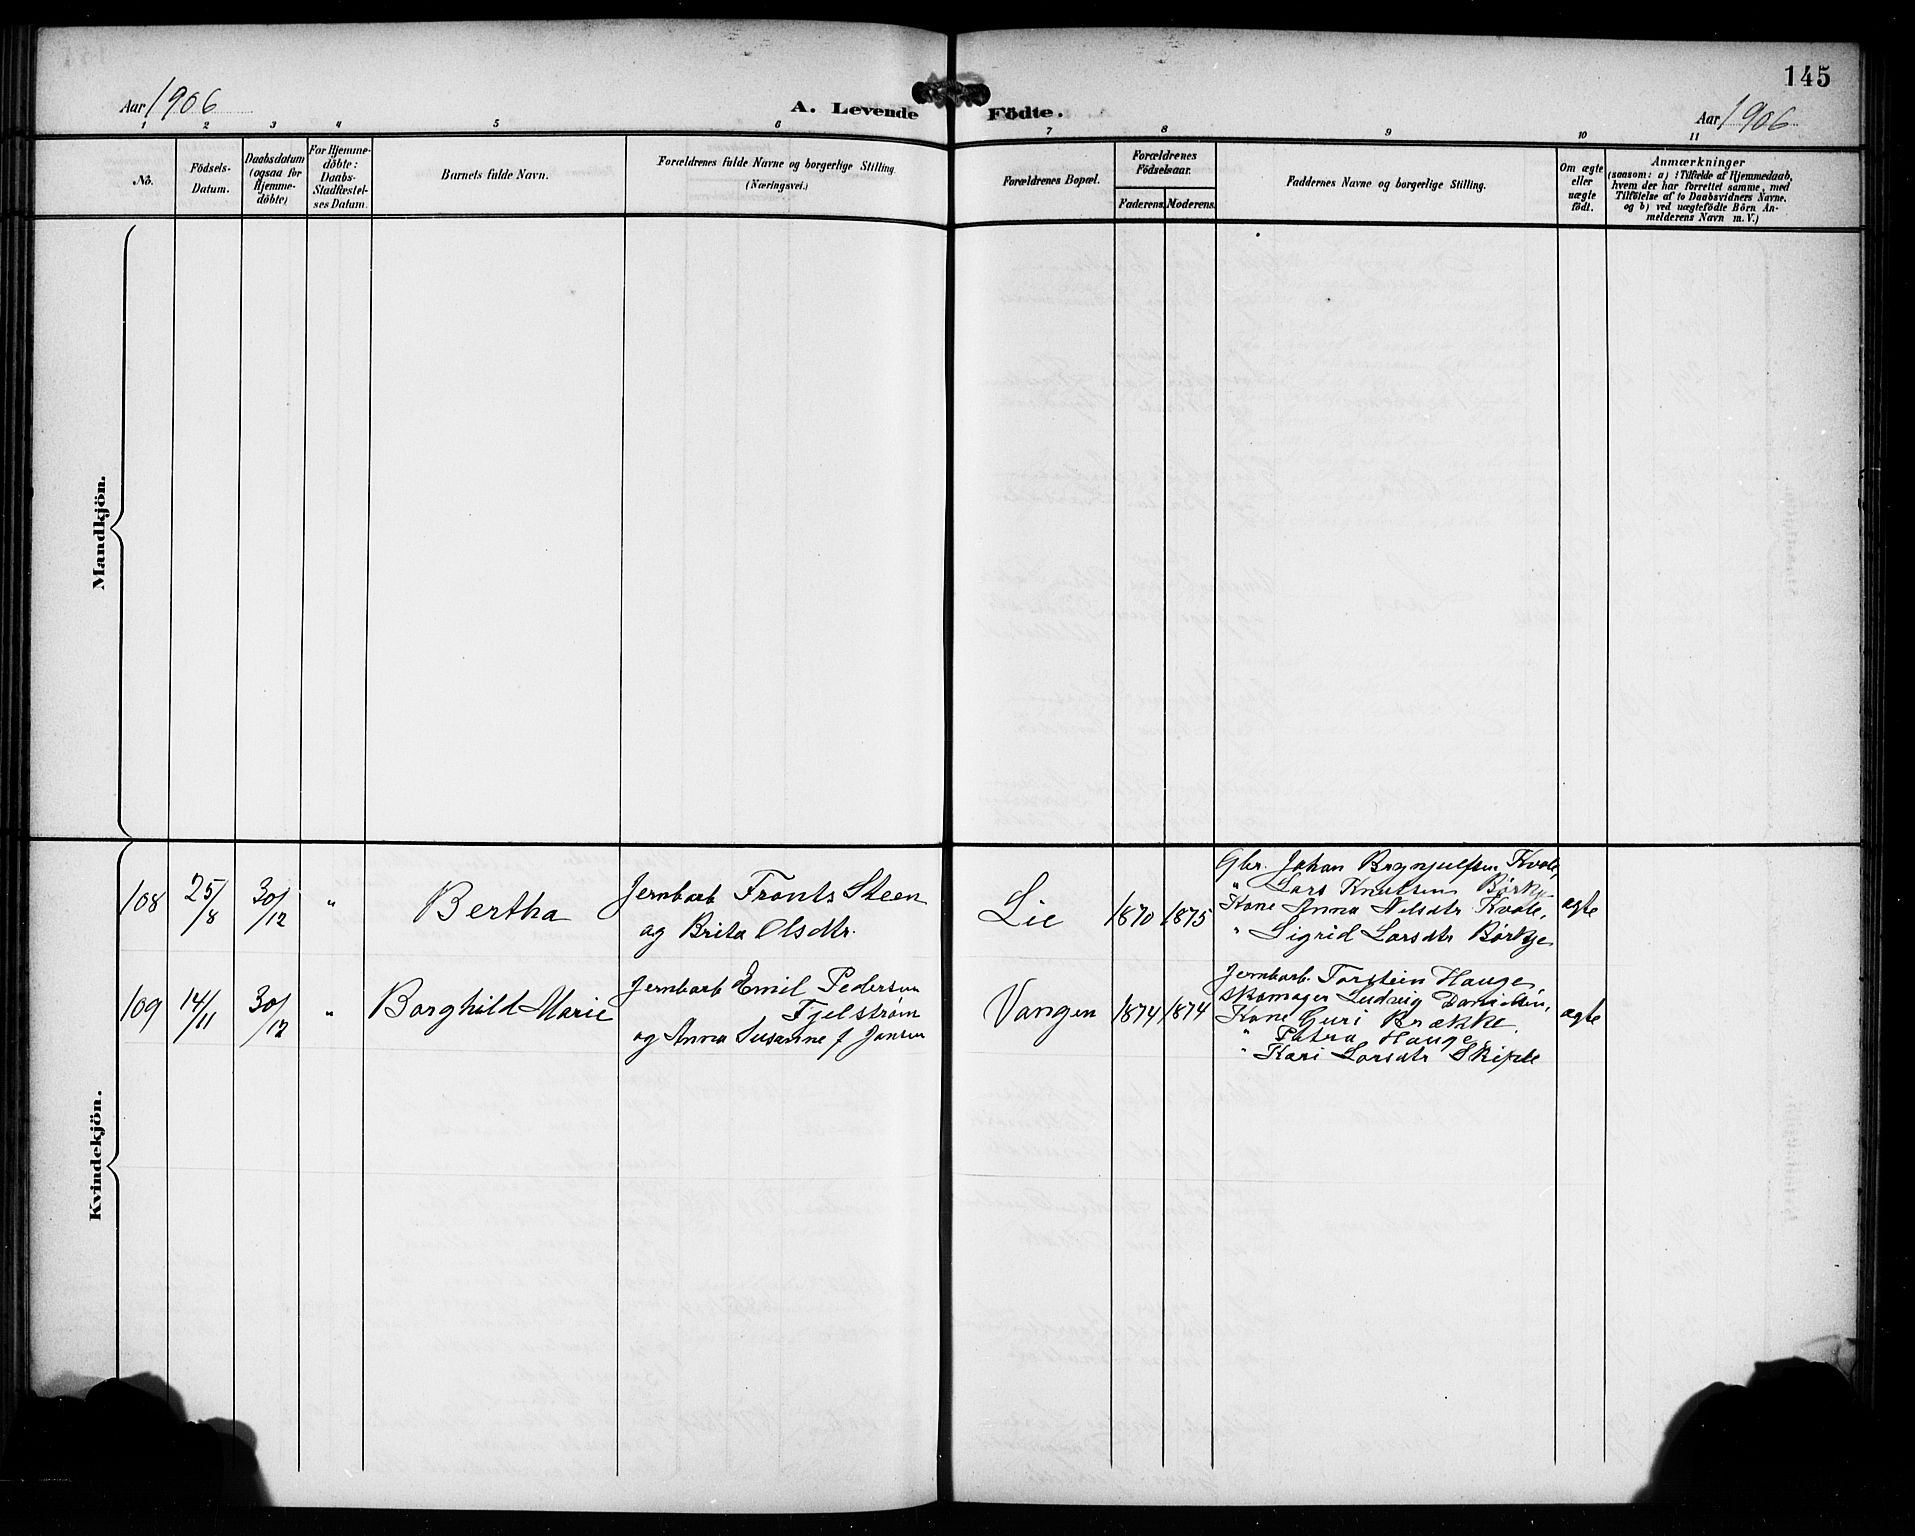 145
Aar 1906
A. Levende Födte.
Aar 1906
1 2 3 4 5 6 7 8 9 10 11
No.
Födsels-
Datum.
Daabsdatum
(ogsaa for
Hjemme-
döbte)
For Hjemme-
döbte:
Daabs-
Stadfæstel-
ses Datum.
Barnets fulde Navn.
Forældrenes fulde Navne og borgerlige Stilling.
(Næringsvei.)
Forældrenes Bopæl.
Forældrenes
Födselsaar.
Faderens. Moderens.
Faddernes Navne og borgerlige Stilling.
Om ægte
eller
uægte
födt.
Anmærkninger
(saasom: a) i Tilfælde af Hjemmedaab,
hvem der har forrettet samme, med
Tilföielse af to Daabsvidners Navne.
og b) ved uægtefödte Börn An-
melderens Navn m. V.)
Mandkjön.
Kvindekjön.
108 25/8 30/12 " Bertha
Jernbarb Fronts Steen
og Brita Olsdtr.
Lie 1870 1875
Gbr. Johan Brynjulfsen Kvale,
" Lars Knutsen Börkje
Kone Anna Nilsdtr Kvale,
" Sigrid Larsdtr Börkje
ægte
109 14/11 30/12 " Borghild Marie
Jernbarb Emil Pedersen
Fjelström
og Anna Susanne f Jansen
Vangen 1874 1874
Jernbarb. Torstein Hauge,
Skomager Ludvig Danielsen,
Kone Guri Brække,
" Petra Hauge,
" Kari Larsdtr Skiple
ægte